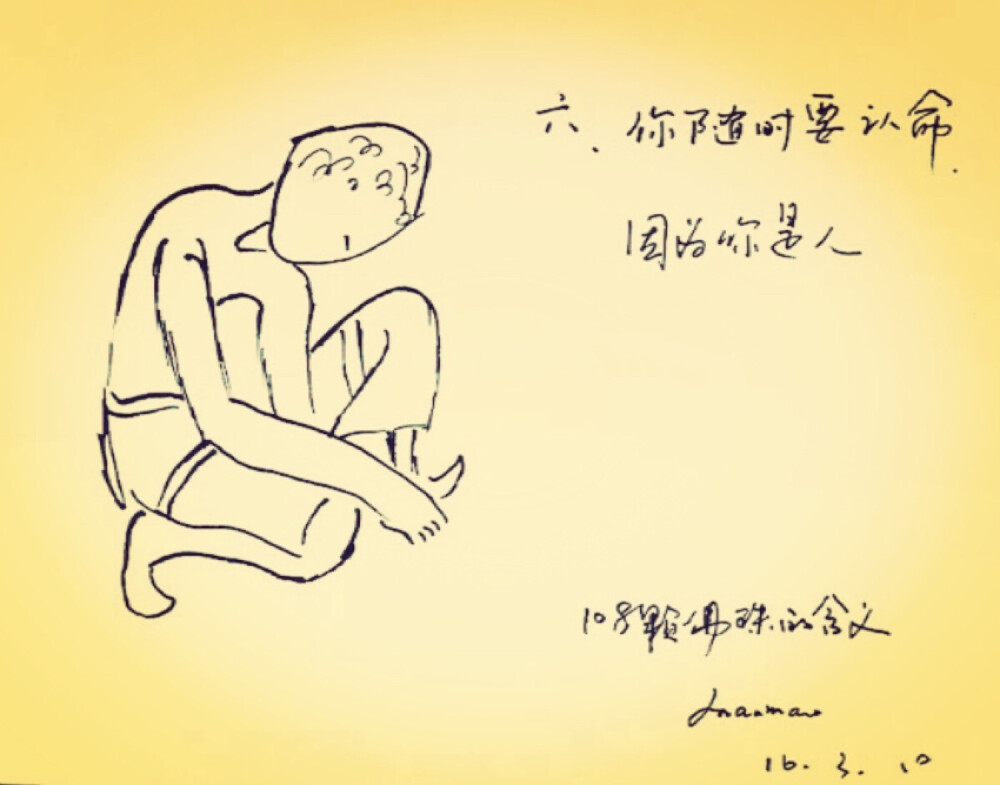 六、你随时要认命.
因为你是人
108颗佛珠的含义
16. 3. 10